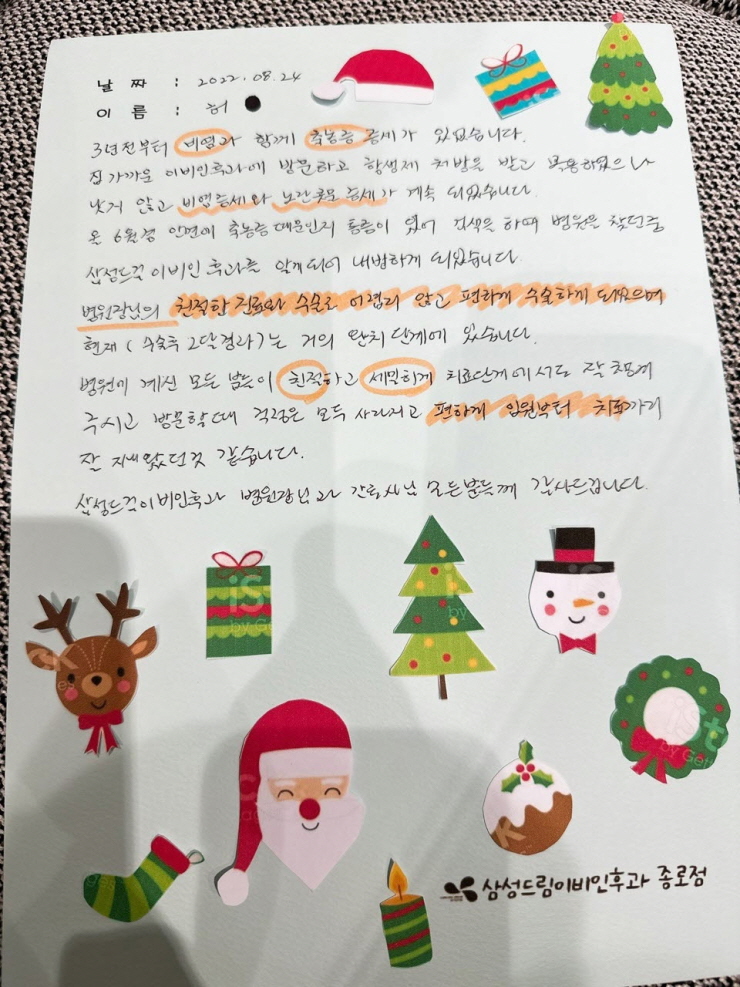 날 짜 : 2022.08.24
이 름 : 허
3년전부터 비염과 함께 축농증 증세가 있었습니다.
집 가까운 이비인후과에 방문하고 항생제 처방을 받고 복용하였으나
낫지 않고 비염증세와 노란콧물 증세가 계속 되었습니다.
온 6월경 안면에 축농증때문인지 통증이 있어 검색을 하며 병원을 찾던중
삼성드림이비인후과를 알게되어 내방하게 되었습니다.
병원장님의 친절한 진료와 수술로 어렵지 않고 편하게 수술하게 되었으며
현재 (수술후 2달경과)는 거의 완치단계에 있습니다.
병원에 계신 모든 분들이 친절하고 세밀하게 치료단계에서도 잘
주시고 방문할때 걱정은 모두 사라지고 편하게 입원부터 치료까지
잘 지내왔던것 같습니다.
삼성드림이비인후과 병원장님과 간호사님 모든분들께 감사드립니다.
iS
by Get
iSt
by Get
삼성드림이비인후과 종로점